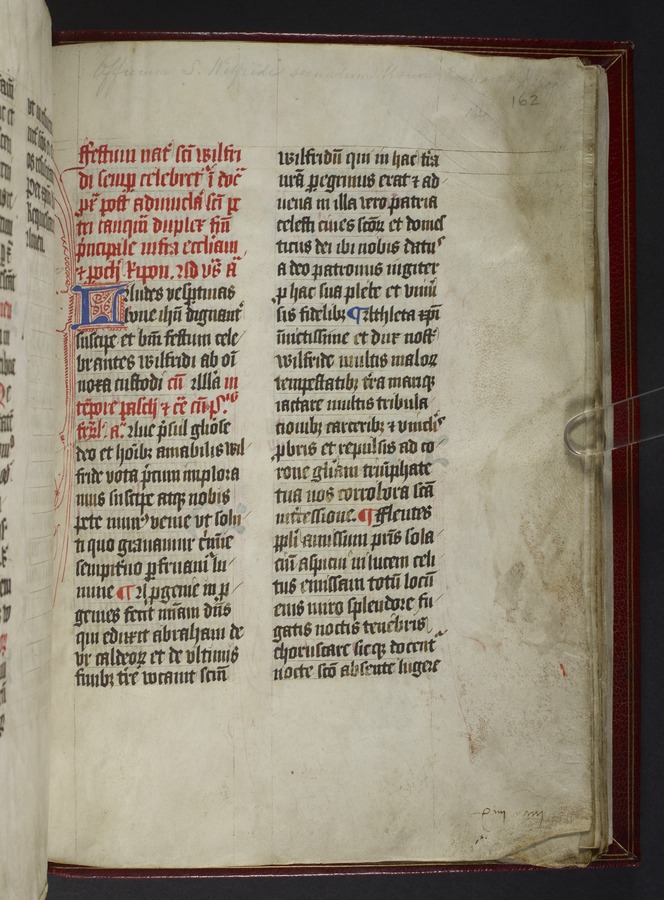 162
ffestum nat̄ sc̄i wilfri
di semꝑ celebret̉ ī
post aduincła sc̄i pe
tri tanqm̄ duplex
pͥncipale infra eccliam
⁊ Ripon. Ad vs̄ a̅
Laudes vespertinas
bone ihū dignant̉
suscipe et bm̄ festum cele
brantes wilfridi ab oī
noxa custodi cū Alla in
tp̄ore pasch ⁊
a. Aue p̄sul gliose
deo et hoīb; amabilis wil
fride vota pͥcum implora
mus suscipe atq; nobis
pete mun̉ venie vt solu
ti quo grauamur cͥmīe
sempit̉no ꝑfruam̉ lu
mine ¶ A ꝓgenie in ꝓ
genies fecit mīam dn̄s
qui eduxit abraham de
vr caldeoꝝ et de vltimis
finib; tr̄e vocauit scm̄
wilfridū qui in hac tr̄a
urā ꝑegrinus erat ⁊ ad
uena in illa vero patria
celesti ciues scōꝝ et domes
ticus dei ibi nobis datus
a deo patronus iugiter
ꝓ hac sua plebe et vniủ
sis fidelib; ¶ Athleta xp̄i
inuictissime et dux nost̉
wilfride multis maloꝝ
tempestatib; t̉ra mariq;
iactate multis tribula
tionib; carcerib; ⁊ vinclis
ꝓbris et repulsis ad co
rone gliam triūphate
tua nos corrobora scā
int̉cessione. ¶ fflentes
ppli amissum pr̄is sola
ciū aspiciūt lucem celi
tus emissam totū locū
eius miro splendore fu
gatis noctis tenebris
choruscare sicq; docent̉
nocte scō absente lugere